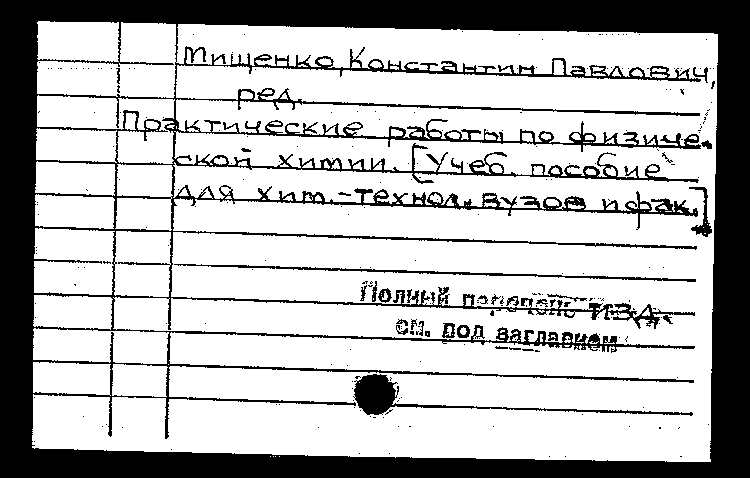 Мищенко, Константин Павлович,
ред.
Практические работы по физиче-
ской химии. [Учеб. пособие
для хим.-технол. вузов и фак.]
Полный перечень изд.
см. под заглавием